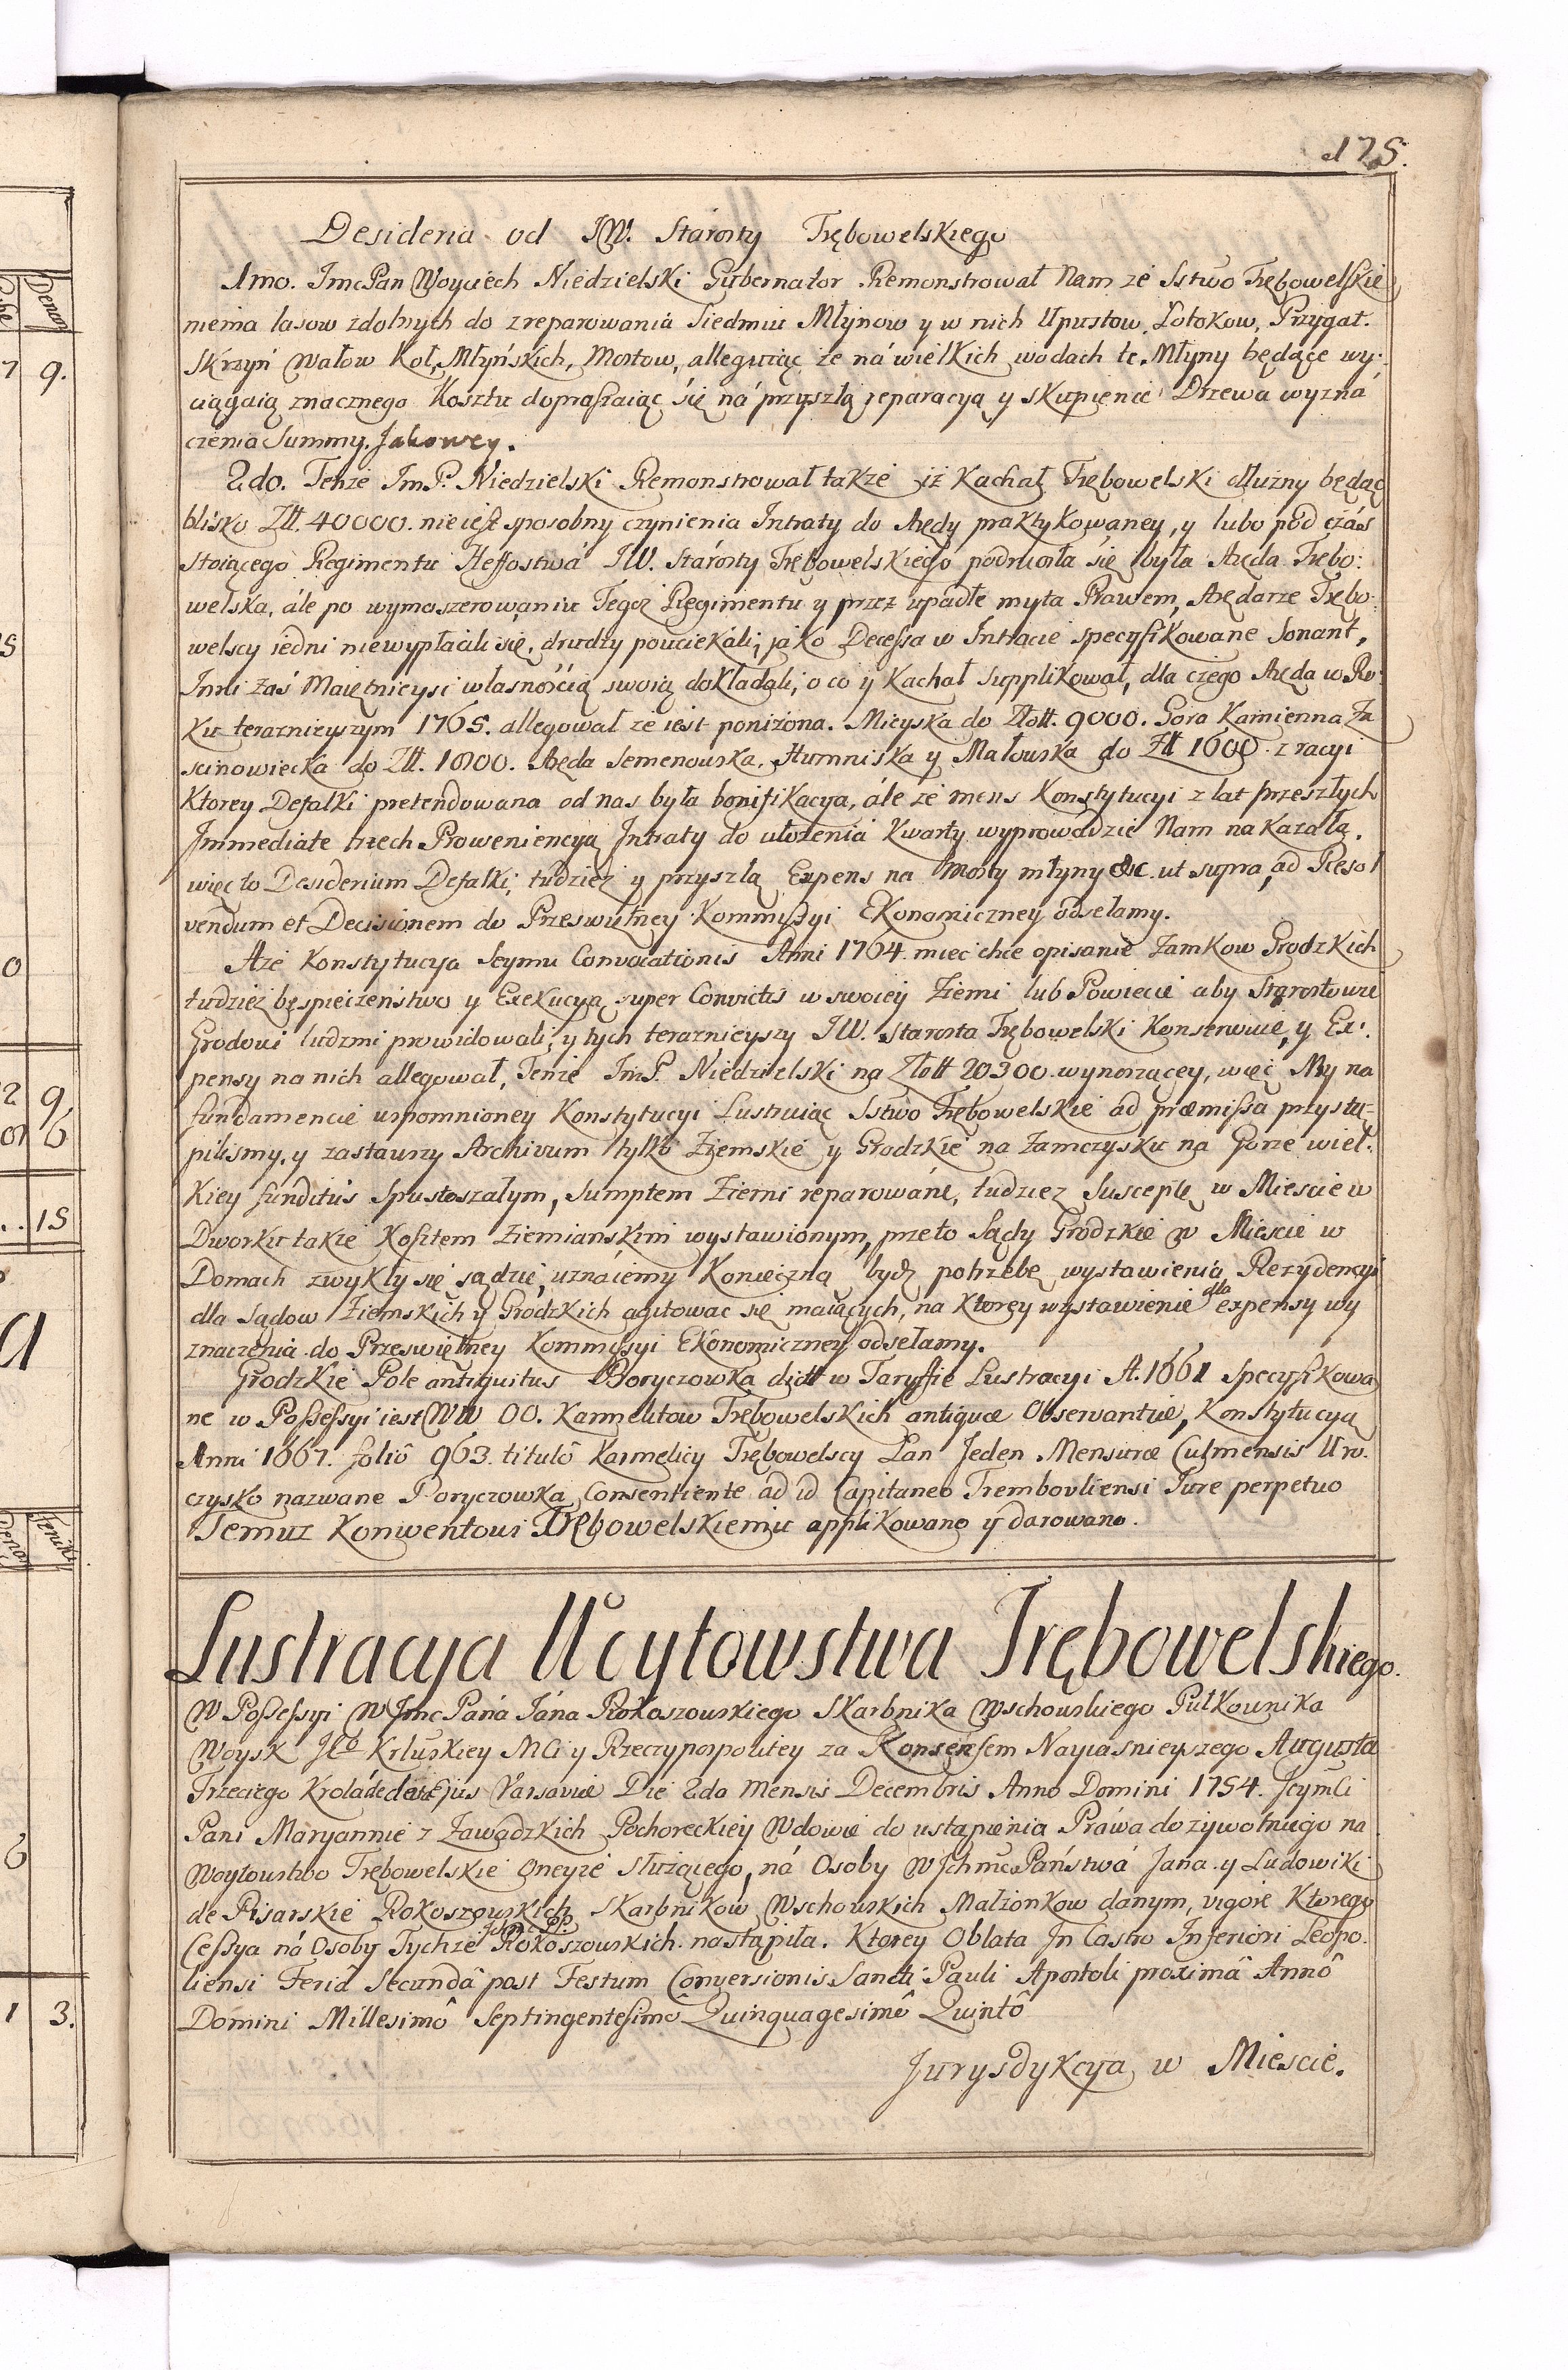 175.
Desideria od JW. Starosty Trębowelskiego
1mo. ImcPan Woyciech Niedzielski Gubernator Remonstrował Nam ze Sstwo Trębowelskie
niema lasow zdolnych do zreparowania Siedmiu Młynow y w nich Upustow, Łotokow, Przygat.
Skrzyń Wałow Koł Młyńskich, Mostow, alleguiąc ze ná wielkich wodach te Młyny będące wy:
ciągaią znacznego Kosztu dopraszaiąc się ná przyszłą reparacyą y skupienie Drzewa wyzna
czenia Summy Jakowey.
2do. Tenze ImP. Niedzielski Remonstrował takze iż Kachał Trębowelski dłużny będąc
blisko Złł. 40000. nie iest sposobny czynienia Intraty do Arędy praktykowaney, y lubo pod czás
stoiącego Regimentu Szeffostwá JW. Stárosty Trębowelskiego podniosła się była Aręda Trębo:
welska, ále po wymaszerowaniu Tegoż Regimentu y przez upadłe myta Prawem, Arędarze Trębo:
welscy iedni niewypłacili się, drudzy pouciekáli, jáko Decessa w Intracie specyfikowane Sonant,
Inni zaś Maiętnieysi własnością swoią dokładali, o co y Kachał Supplikował, dla czego Aręda w Ro:
ku teraznieyszym 1765. allegował ze iest poniżona. Mieyska do Złott. 9000. Gora Kamienna Za
scinowiecka do Złł. 1800. Aręda Semenowska, Humniska y Małowska do Złł 1600. z racyi
Ktorey Defalki pretendowana od nas była bonifikacya, ále że mens Konstytucyi z lat przeszłych
Immediate trzech Proweniencyą Intraty do ułożenia Kwarty wyprowadzic Nam nakazała,
więc to Desiderium Defalki, tudziez y przyszłą Expens na Mosty młyny &c. ut supra, ad Resol
vendum et Decisionem do Prześwietney Kommissyi Ekonomiczney odsełamy.
Aże Konstytucya Seymu Convocationis Anni 1764. miec chce opisanie Zamkow Grodzkich
tudzież bespieczeństwo y Exekucyą super Convictis w swoiey Ziemi lub Powiecie aby Starostowie
Grodowi ludzmi prowidowali, y tych teraznieyszy JW. Starosta Trębowelski Konserwuie, y Ex:
pensy na nich allegował, Tenże ImP. Niedzielski na Złott 20300. wynoszącey, więc My na
fundamencie wspomnioney Konstytucyi Lustruiąc Sstwo Trębowelskie ad præmissa przystą=
pilismy, y zastawszy Archivum tylko Ziemskie y Grodzkie na Zamczysku na Gorze wiel:
kiey funditus Spustoszałym, Sumptem Ziemi reparowáne, tudziez Susceptę w Miescie w
Dworku takze Kosztem Ziemianskim wystawionym, przeto Sądy Grodzkie w Miescie w
Domach zwykły się sądzic, uznaiemy Konieczną bydz potrzebę wystawienia Rezydencyi
dla Sądow Ziemskich y Grodzkich agitowac się maiących, na Ktorey wystawienie dla expensy wy
znaczenia do Prześwietney Kommissyi Ekonomiczney odsełamy.
Grodzkie Pole antiquitus Boryczowka dictt w Taryffie Lustracyi A. 1661 Specyfikowa
ne w Possessyi iest WW OO. Karmelitow Trębowelskich antiquæ Observantiæ, Konstytucyą
Anni 1667. folio 963. titulô Karmelicy Trębowelscy Łan Jeden Mensuræ Culmensis Uro:
czysko nazwane Boryczowka Consentiente ad id Capitaneo Trembovliensi Jure perpetuo
Temuz Konwentowi Trębowelskiemu applikowano y darowano.
Lustracya Woytowstwa Trębowelskiego.
W Possessyi WJmc Páná Jáná Rokoszowskiego Skarbnika Wschowskiego Pułkownika
Woysk Jgo Krluskiey Mci y Rzeczypospolitey za Konsensem Nayiasnieyszego Augusta
Trzeciego Krolá de dato ejus Varsaviæ Die 2da Mensis Decembris Anno Domini 1754. Jeymci
Pani Maryannie z Zawadzkich Pochoreckiey Wdowie do ustąpienia Práwa dożywotniego na
Woytowstwo Trębowelskie Oneyże służącego, ná Osoby WJchmc Państwá Jana y Ludowiki
de Pisarskie Rokoszowskich Skarbnikow Wschowskich Małzonkow danym, vigore Ktorego
Cessya ná Osoby Tychze Jchmc PP. Rokoszowskich nastąpiła. Ktorey Oblata In Castro Inferiori Leopo:
liensi Feriâ Secundâ post Festum Conversionis Sancti Pauli Apostoli proximâ Annô
Domini Millesimô Septingentesimô Quinquagesimô Quintô
Jurysdykcya w Miescie.